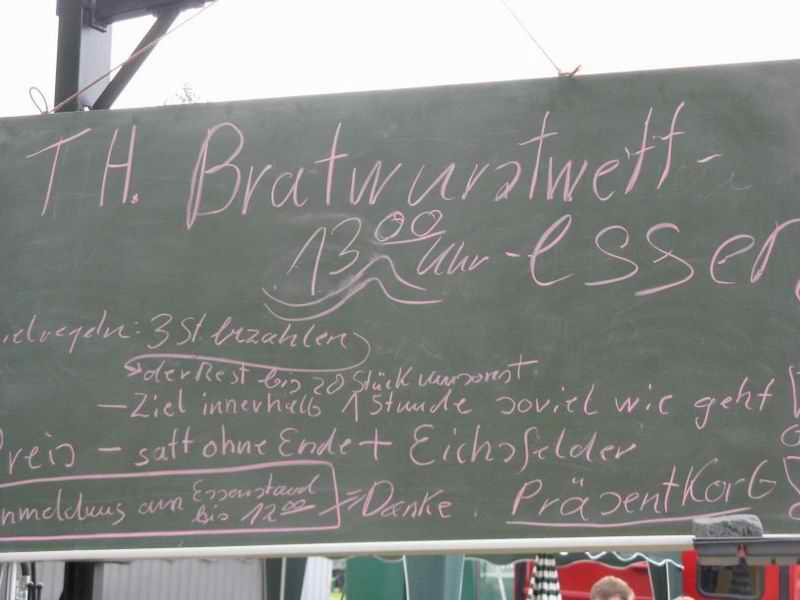 TH. Bratwurstwett-
13⁰⁰ Uhr - essen
ielregeln: 3 St. bezahlen
→ der Rest bis 20 Stück umsonst
— Ziel innerhalb 1 Stunde soviel wie geht
Preis — satt ohne Ende + Eichsfelder
Präsentkorb
nmeldung am Essenstand
bis 12⁰⁰ ⇒ Danke.